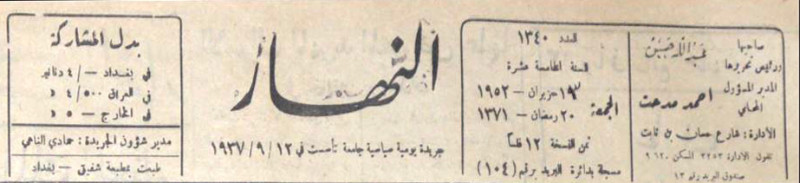 صاحبها
ورئيس تحريرها
عبد الله حسين
المدير المسؤول
المحامي
احمد مدحت
الادارة : شارع حسان بن ثابت
تلفون الادارة ٣٢٥٣ السكن ٩٦٢٠
صندوق البريد رقم ١٣
العدد ١٣٤٠
السنة الخامسة عشرة
الجمعة
١٣ حزيران – ١٩٥٢
٢٠ رمضان – ١٣٧١
ثمن النسخة ١٢ فلساً
مسجلة بدائرة البريد برقم (١٠٤)
النهار
جريدة يومية سياسية جامعة تأسست في ١٢ / ٩ / ١٩٣٧
بدل المشاركة
في بغداد – / ٤ دنانير
في العراق ٥٠٠ / ٤ د
في الخارج – ٥ د
مدير شؤون الجريدة : حمادي الناهي
طبعت بمطبعة شفيق – بغداد